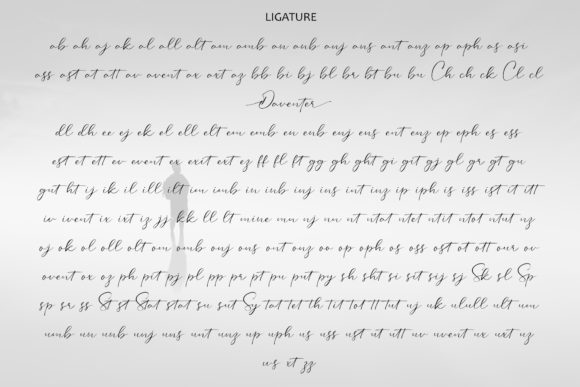 LIGATURE
ab ah aj ak al all alt am amb an anb anj ans ant anz ap aph as asi
ass ast at att av avent ax axt az bb bi bj bl br bt bu bu Ch ch ck Cl cl
Daventer
dl dh ee ej ek el ell elt em emb en enb enj ens ent enz ep eph es ess
est et ett ev event ex exit ext ez ff fl ft gg gh ght gi git gj gl gr gt gu
gut ht ij ik il ill ilt im imb in inb inj ins int inz ip iph is iss ist it itt
iv ivent ix ixt iz jj kk ll lt mine mn nj nn nt ntat ntet ntit ntot ntut nz
oj ok ol oll olt om omb onj ons ont onz oo op oph os oss ost ot ott our ov
ovent ox oz ph pit pj pl pp pr pt pu put py sh sht si sit sij sj Sk sl Sp
sp sr ss St st Stat stat su sut Sy tat tet th tit tot tt tut uj uk ull ult um
umb un unb unj uns unt unz up uph us uss ust ut utt uv uvent ux uxt uz
ws xt zz